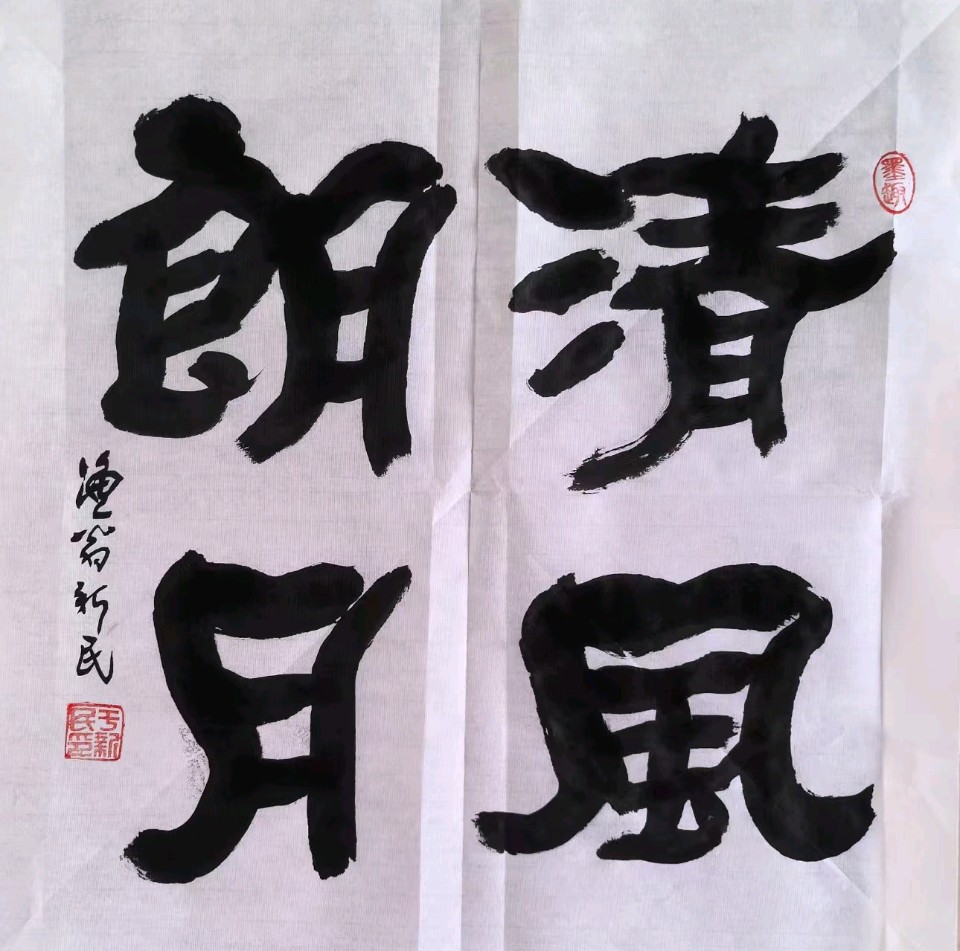 清風
朗月
漁翁新民
墨趣
于新民印